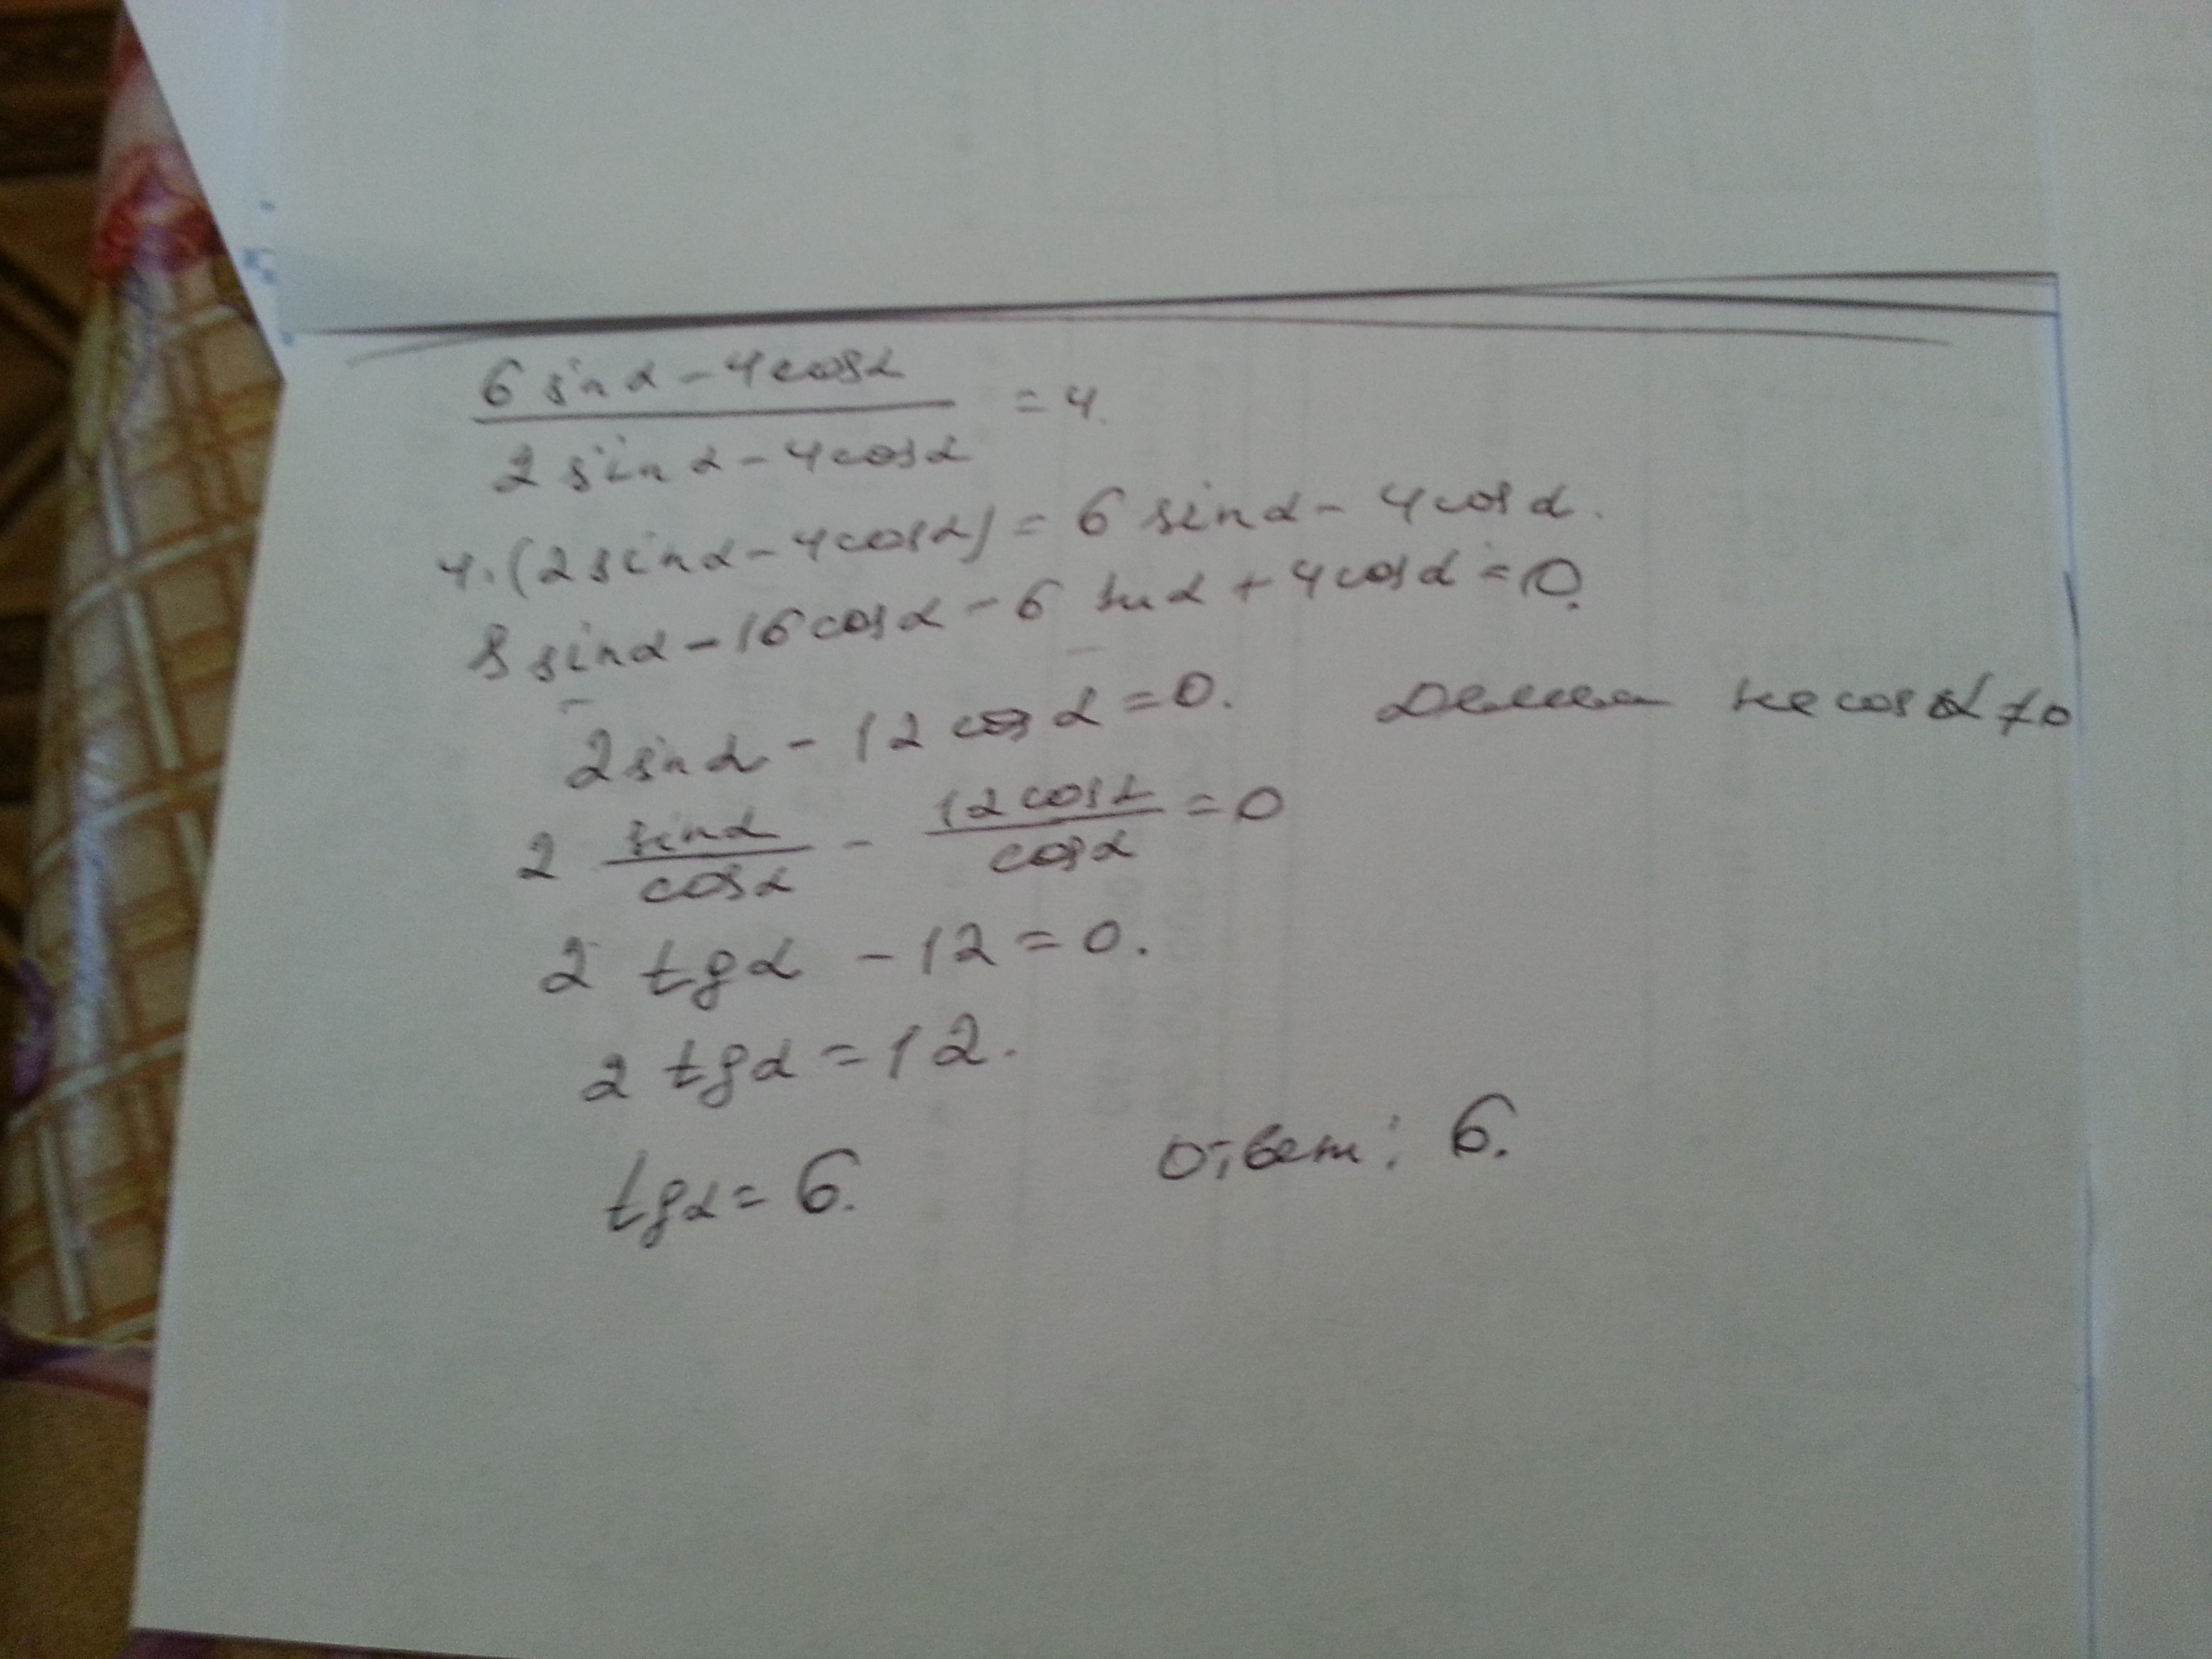 6 sin α - 4 cos α
――――――――― = 4.
2 sin α - 4 cos α
4·(2 sin α - 4 cos α) = 6 sin α - 4 cos α.
8 sin α - 16 cos α - 6 sin α + 4 cos α = 0.
2 sin α - 12 cos α = 0. Делим на cos α ≠ 0
2 sin α / cos α - 12 cos α / cos α = 0
2 tg α - 12 = 0.
2 tg α = 12.
tg α = 6. Ответ: 6.